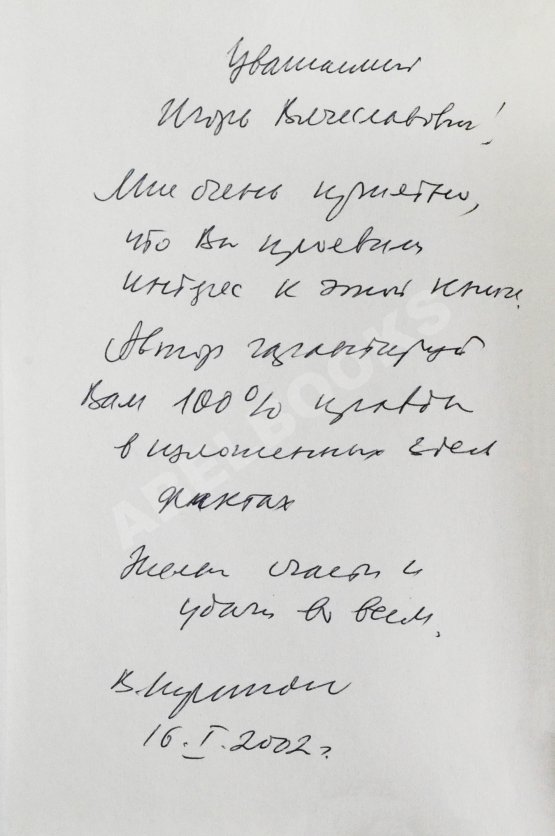 Уважаемый
Игорь Вячеславович!
Мне очень приятно,
что Вы проявили
интерес к этой книге.
Автор гарантирует
Вам 100% правды
в изложенных здесь
фактах
Желаю счастья и
удачи во всем.
16.I.2002г.
ABELBOOKS